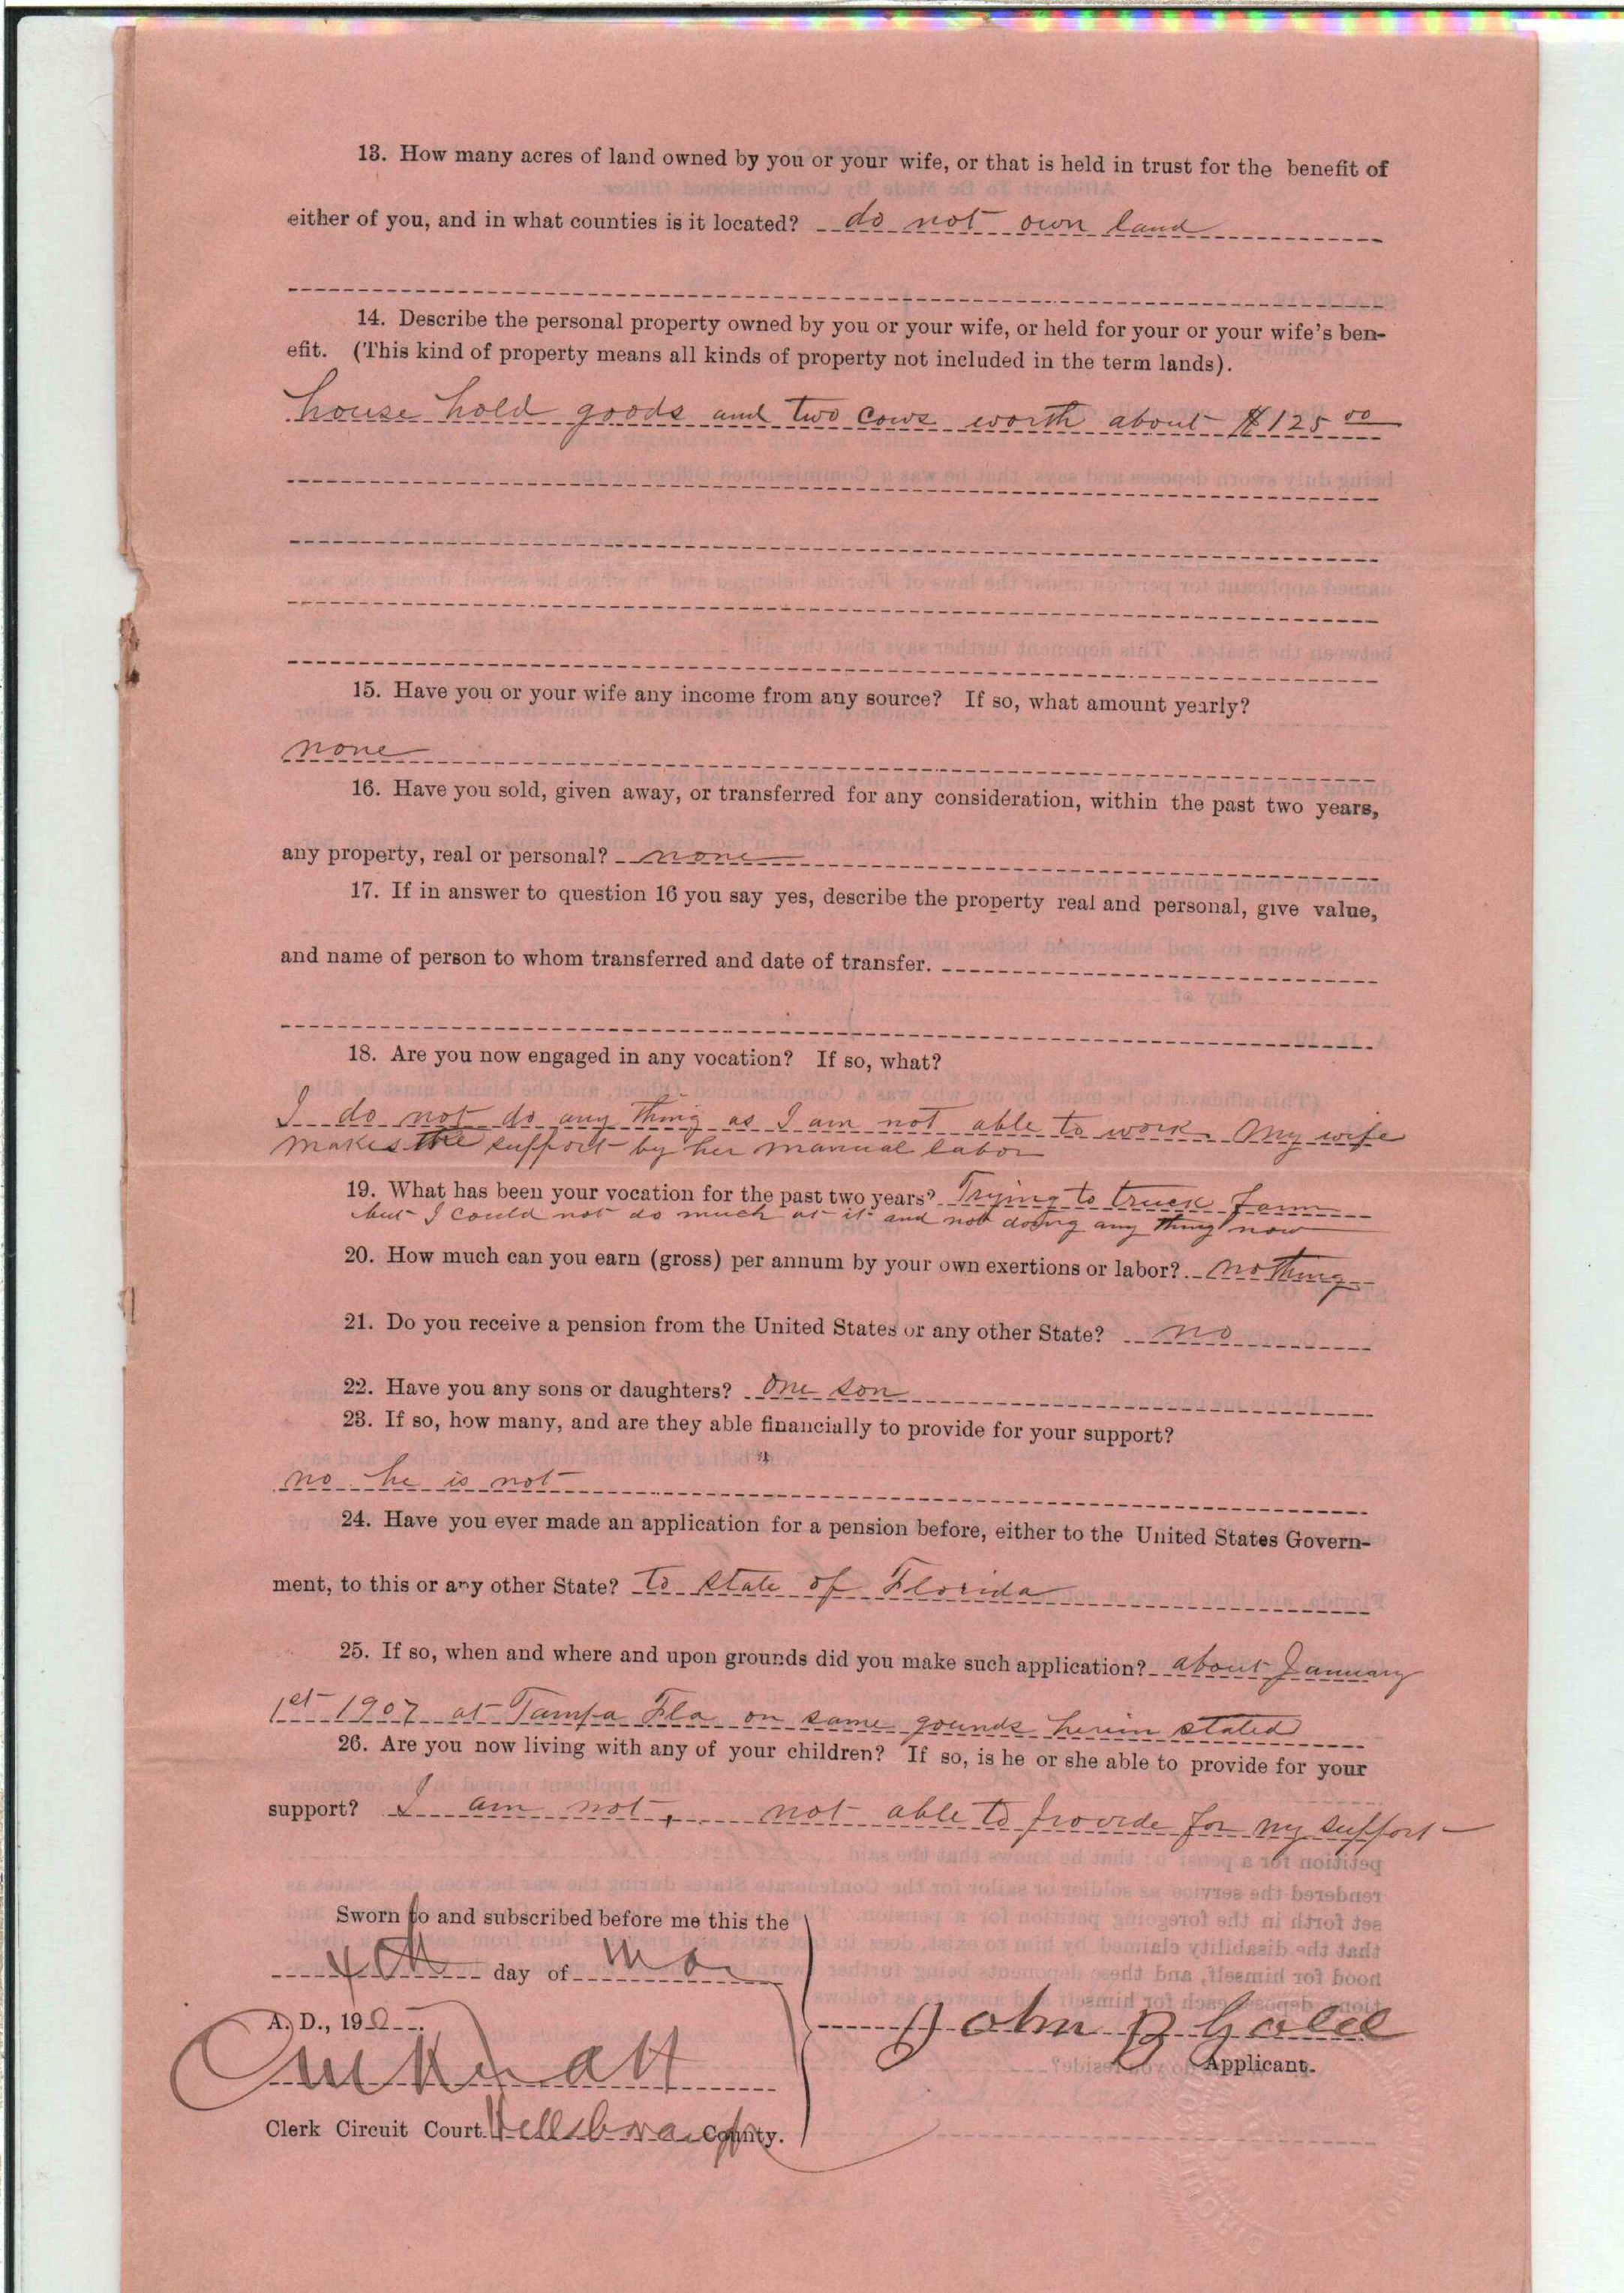 13. How many acres of land owned by you or your wife, or that is held in trust for the benefit of
either of you, and in what counties is it located? do not own land
14. Describe the personal property owned by you or your wife, or held for your or your wife's ben-
efit. (This kind of property means all kinds of property not included in the term lands).
house hold goods and two cows worth about $125 00
15. Have you or your wife any income from any source? If so, what amount yearly?
none
16. Have you sold, given away, or transferred for any consideration, within the past two years,
any property, real or personal? none
17. If in answer to question 16 you say yes, describe the property real and personal, give value,
and name of person to whom transferred and date of transfer.
18. Are you now engaged in any vocation? If so, what?
I do not do any thing as I am not able to work. My wife
makes the support by her manual labor
19. What has been your vocation for the past two years? Trying to truck farm
but I could not do much at it and not doing any thing now
20. How much can you earn (gross) per annum by your own exertions or labor? nothing
21. Do you receive a pension from the United States or any other State? no
22. Have you any sons or daughters? One son
23. If so, how many, and are they able financially to provide for your support?
no he is not
24. Have you ever made an application for a pension before, either to the United States Govern-
ment, to this or any other State? to state of Florida
25. If so, when and where and upon grounds did you make such application? about January
1st 1907 at Tampa Fla on same gounds herein stated
26. Are you now living with any of your children? If so, is he or she able to provide for your
support? I am not, not able to provide for my support
Sworn to and subscribed before me this the
4th day of
A. D., 190
John B
Applicant.
Clerk Circuit Court County.